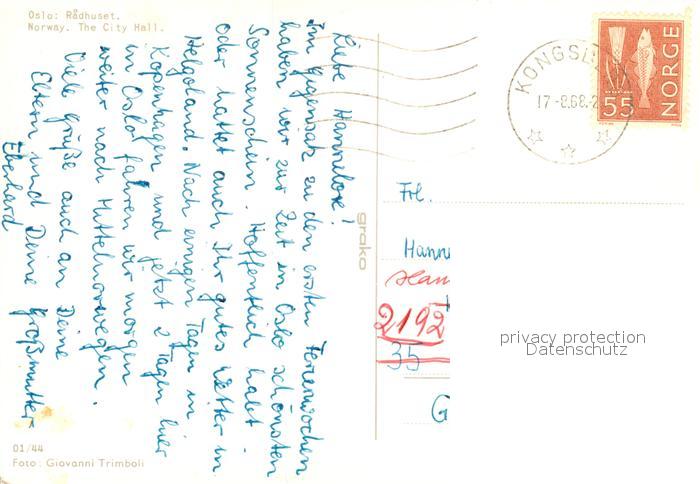 Oslo: Rådhuset.
Norway. The City Hall.
Liebe Hannelore!
Im Gegensatz zu den ersten Ferienwochen
haben wir zur Zeit in Oslo schönsten
Sonnenschein. Hoffentlich habt
oder hattet auch Ihr gutes Wetter in
Helgoland. Nach einigen Tagen in
Kopenhagen und jetzt 2 Tagen hier
in Oslo fahren wir morgen
weiter nach Mittelnorwegen.
Viele Grüße auch an Deine
Eltern und Deine Großmutter
Eberhard
01/44
Foto: Giovanni Trimboli
grako
17-8.68-2
55
NORGE
Frl.
Hanne
Han
2192
35
G
privacy protection
Datenschutz